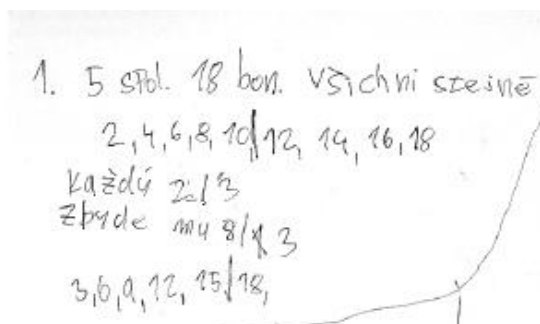 1. 5 spol. 18 bon. všichni stejně
2, 4, 6, 8, 10/12, 14, 16, 18
každý 2/3
zbyde mu 8/ 3
3, 6, 9, 12, 15/18,